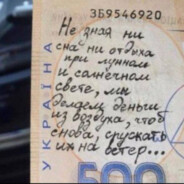 ЗБ9546920
УКРАЇНА
Не зная ни
сна ни отдыха
при лунном
и солнечном
свете, мы
делаем деньги
из воздуха, чтоб
снова спускать
их на ветер...
500